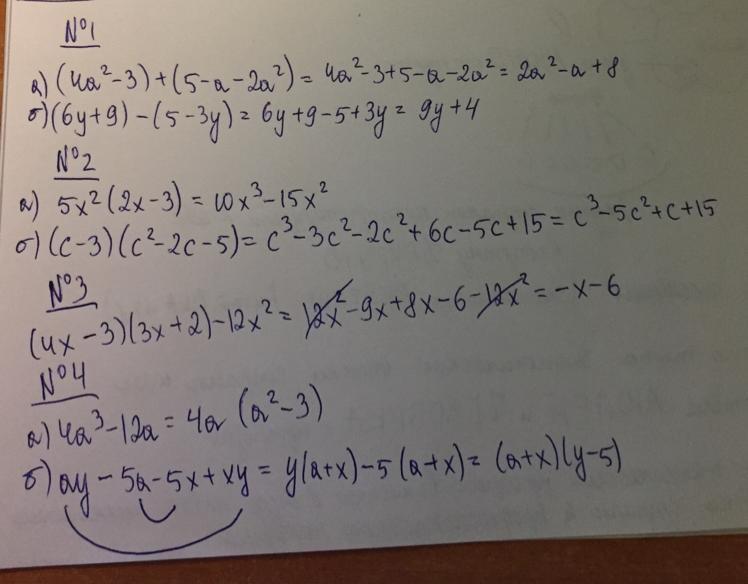 №1
а) (4a²-3)+(5-a-2a²)= 4a²-3+5-a-2a²= 2a²-a+8
б) (6y+9)-(5-3y)= 6y+9-5+3y= 9y+4
№2
а) 5x²(2x-3)=10x³-15x²
б) (c-3)(c²-2c-5)= c³-3c²-2c²+6c-5c+15= c³-5c²+c+15
№3
(4x-3)(3x+2)-12x²= 12x²-9x+8x-6-12x²=-x-6
№4
а) 4a³-12a= 4a (a²-3)
б) ay-5a-5x+xy= y(a+x)-5(a+x)= (a+x)(y-5)